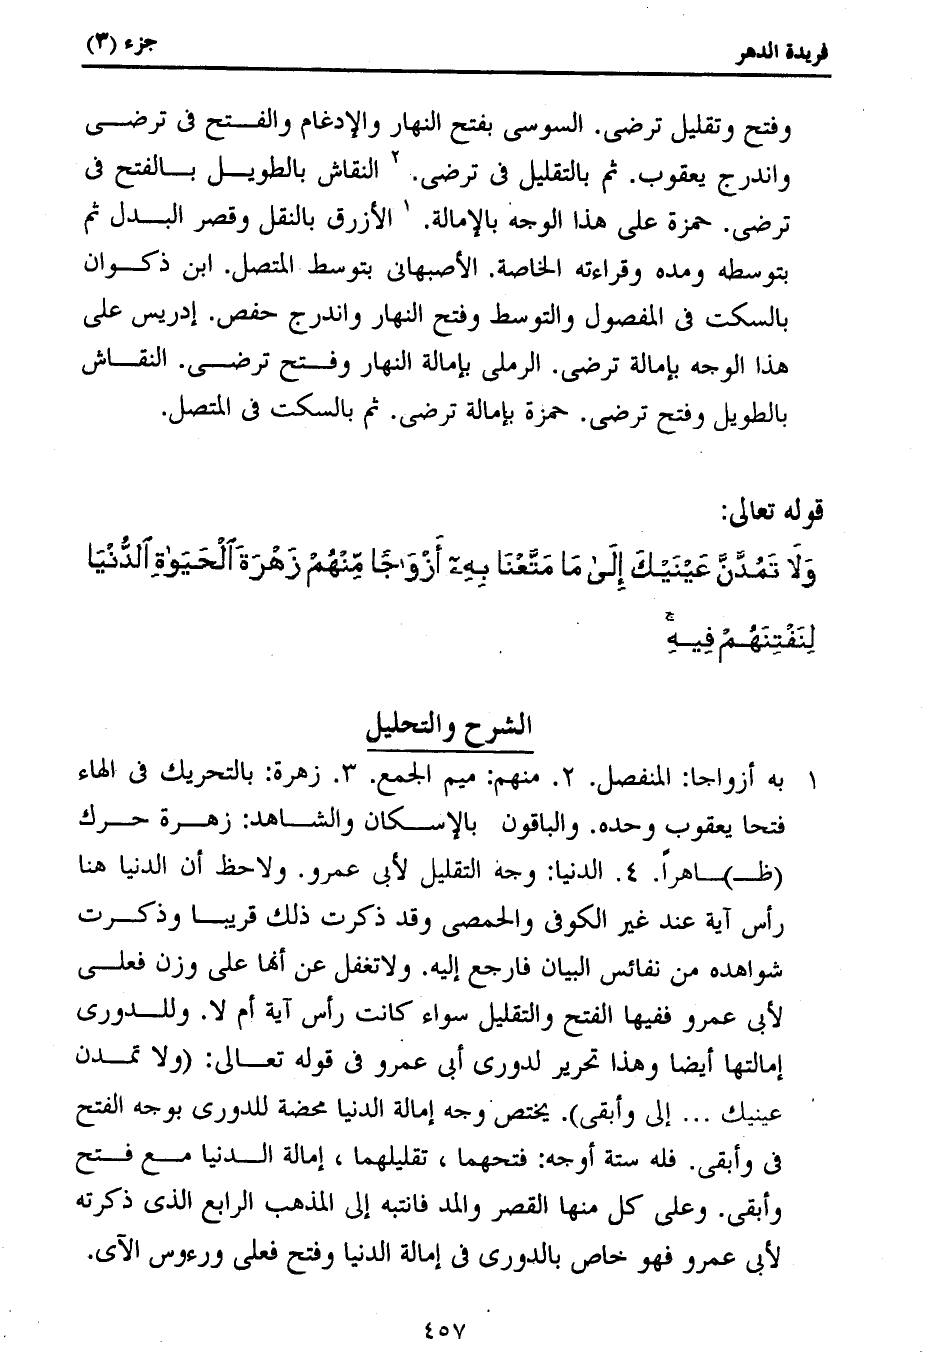 فريدة الدهر
جزء (٣)
وفتح وتقليل ترضى. السوسى بفتح النهار والإدغام والفتح فى ترضى
واندرج يعقوب. ثم بالتقليل فى ترضى. ٢ النقاش بالطويل بالفتح فى
ترضى. حمزة على هذا الوجه بالإمالة. ١ الأزرق بالنقل وقصر البدل ثم
بتوسطه ومده وقراءته الخاصة. الأصبهانى بتوسط المتصل. ابن ذكوان
بالسكت فى المفصول والتوسط وفتح النهار واندرج حفص. إدريس على
هذا الوجه بإمالة ترضى. الرملى بإمالة النهار وفتح ترضى. النقاش
بالطويل وفتح ترضى. حمزة بإمالة ترضى. ثم بالسكت فى المتصل.
قوله تعالى:
وَلَا تَمُدَّنَّ عَيْنَيْكَ إِلَىٰ مَا مَتَّعْنَا بِهِۦٓ أَزْوَٰجًا مِّنْهُمْ زَهْرَةَ ٱلْحَيَوٰةِ ٱلدُّنْيَا
لِنَفْتِنَهُمْ فِيهِ ۚ
الشرح والتحليل
١ به أزواجا: المنفصل. ٢. منهم: ميم الجمع. ٣. زهرة: بالتحريك فى الهاء
فتحا يعقوب وحده. والباقون بالإسكان والشاهد: زهرة حرك
(ظ)ـاهراً. ٤. الدنيا: وجه التقليل لأبى عمرو. ولاحظ أن الدنيا هنا
رأس آية عند غير الكوفى والحمصى وقد ذكرت ذلك قريبا وذكرت
شواهده من نفائس البيان فارجع إليه. ولاتغفل عن أنها على وزن فعلى
لأبى عمرو ففيها الفتح والتقليل سواء كانت رأس آية أم لا. وللدورى
إمالتها أيضا وهذا تحرير لدورى أبى عمرو فى قوله تعالى: (ولا تمدن
عينيك ... إلى وأبقى). يختص وجه إمالة الدنيا محضة للدورى بوجه الفتح
فى وأبقى. فله ستة أوجه: فتحهما ، تقليلهما ، إمالة الدنيا مع فتح
وأبقى. وعلى كل منها القصر والمد فانتبه إلى المذهب الرابع الذى ذكرته
لأبى عمرو فهو خاص بالدورى فى إمالة الدنيا وفتح فعلى ورءوس الآى.
٤٥٧